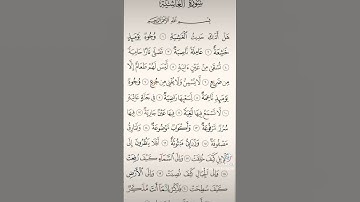 سُورَةُ الْغَاشِيَةِ
بِسْمِ اللَّهِ الرَّحْمَٰنِ الرَّحِيمِ
هَلْ أَتَىٰكَ حَدِيثُ الْغَٰشِيَةِ وُجُوهٌ يَوْمَئِذٍ
خَٰشِعَةٌ عَامِلَةٌ نَّاصِبَةٌ تَصْلَىٰ نَارًا حَامِيَةً
تُسْقَىٰ مِنْ عَيْنٍ ءَانِيَةٍ لَّيْسَ لَهُمْ طَعَامٌ إِلَّا
مِن ضَرِيعٍ لَّا يُسْمِنُ وَلَا يُغْنِي مِن جُوعٍ وُجُوهٌ
يَوْمَئِذٍ نَّاعِمَةٌ لِّسَعْيِهَا رَاضِيَةٌ فِي جَنَّةٍ عَالِيَةٍ
لَّا تَسْمَعُ فِيهَا لَٰغِيَةً فِيهَا عَيْنٌ جَارِيَةٌ فِيهَا
سُرُرٌ مَّرْفُوعَةٌ وَأَكْوَابٌ مَّوْضُوعَةٌ وَنَمَارِقُ
مَصْفُوفَةٌ وَزَرَابِيُّ مَبْثُوثَةٌ أَفَلَا يَنظُرُونَ إِلَى
الْإِبِلِ كَيْفَ خُلِقَتْ وَإِلَى السَّمَاءِ كَيْفَ رُفِعَتْ
وَإِلَى الْجِبَالِ كَيْفَ نُصِبَتْ وَإِلَى الْأَرْضِ
كَيْفَ سُطِحَتْ فَذَكِّرْ إِنَّمَا أَنتَ مُذَكِّرٌ